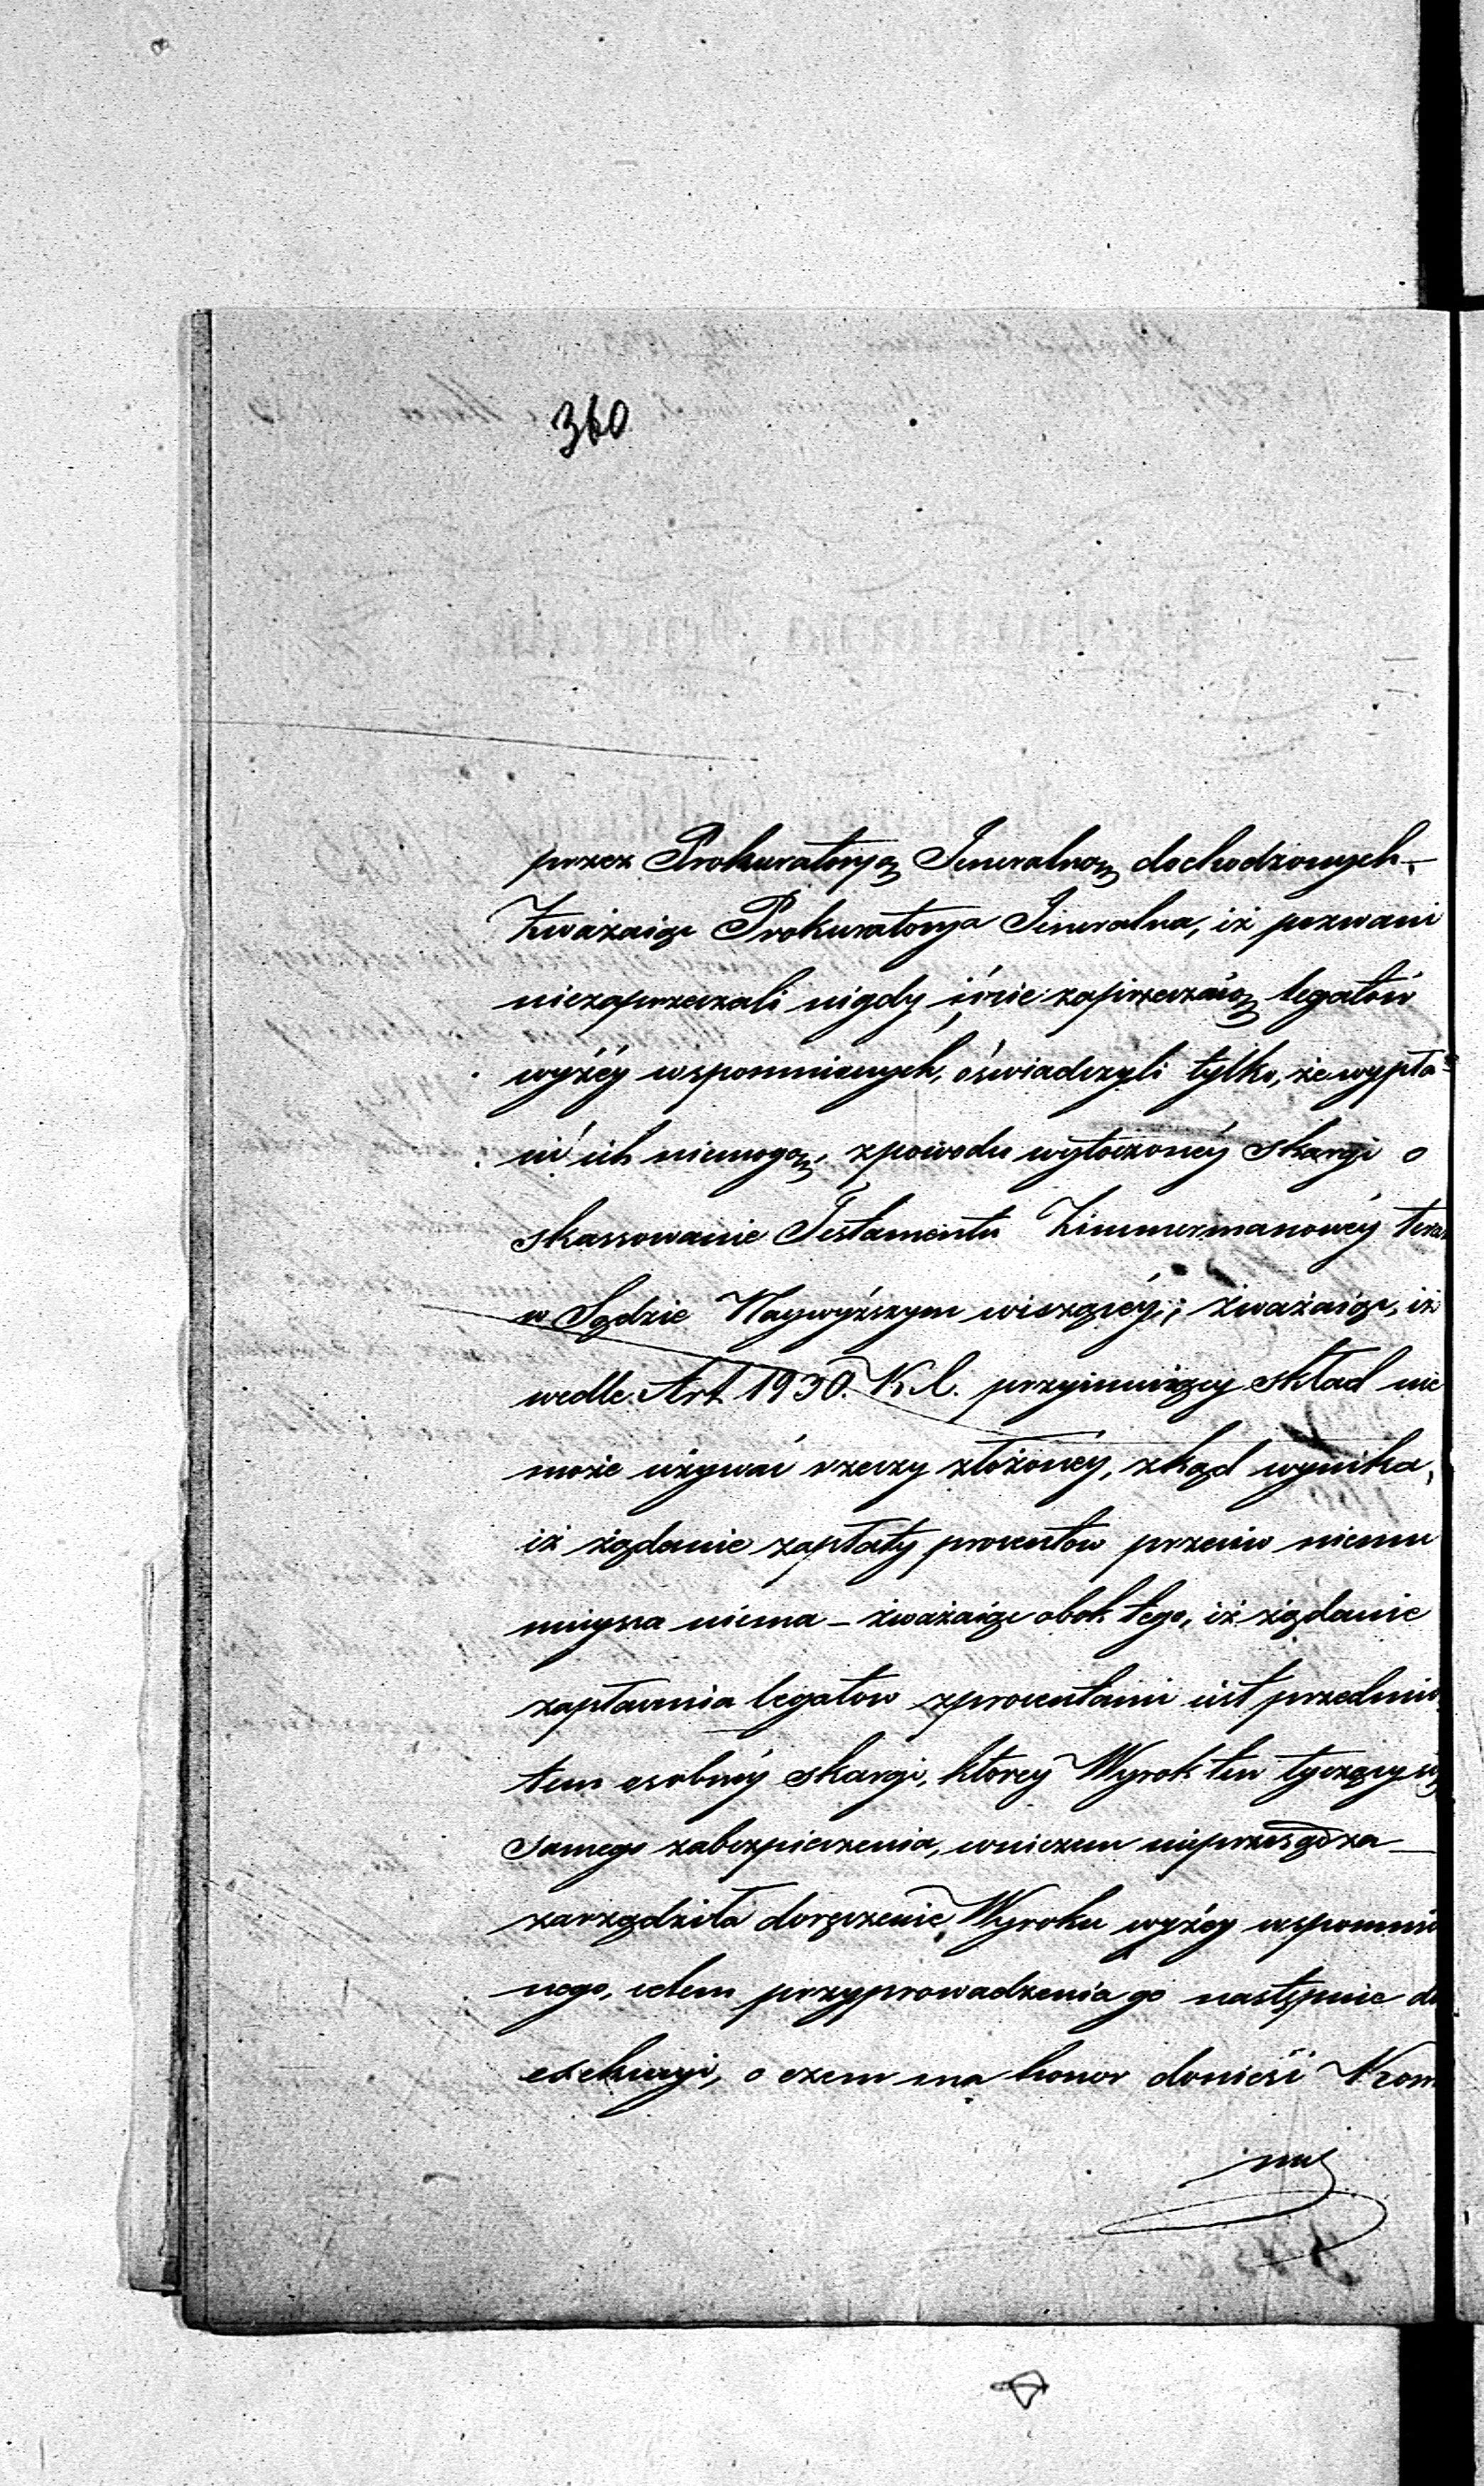 360
przez Prokuratoryą Jeneralną dochodzonych.—
Zważaiąc Prokuratorya Jeneralna, iż pozwani
niezaprzeczali nigdy i nie zaprzeczaią legatów
wyżéy wspomnionych, oświadczyli tylko, że wypła-
cić ich niemogą, zpowodu wytoczonéy skargi o
skassowanie Testamentu Zimmermanowéy teraz
w Sądzie Naywyższym wiszącéy; zważaiąc, iż
wedle Art. 1930. K.C. przyimuiący skład nie
może używać rzeczy złożonéy, zkąd wynika,
iż żądanie zapłaty procentow przeciw niemu
mieysca niema – zważaiąc obok tego, iż żądanie
zapłacenia legatow zprocentami iest przedmio
tem osobnéy skargi, ktorey Wyrok ten tyczący się
samego zabezpieczenia, wniczem nieprzesądza —
zarządziła doręczenie Wyroku wyżey wspomnio
nego, celem przyprowadzenia go następnie do
exekucyi, o czem ma honor donieść Kom